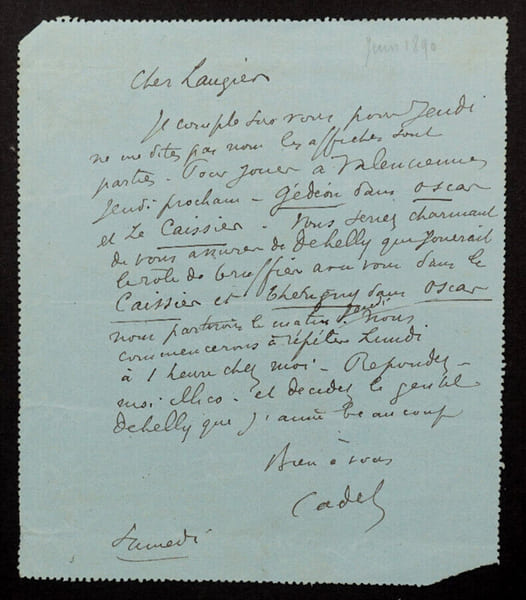 Juin 1890
Cher Laugier
Je compte sur vous pour Jeudi
ne me dites pas non les affiches sont
parties - Pour jouer à Valenciennes
Jeudi prochain - Gédéon dans Oscar
et Le Caissier. Vous seriez charmant
de vous assurer de Dehelly que jouerait
le rôle de Truffier avec vous dans le
Caissier et Therigny dans Oscar
nous partirons le matin Jeudi nous
commencerons à répéter Lundi
à 1 heure chez moi - Repondez-
moi illico - et decidez le gentil
Dehelly que j'aime beaucoup
Bien à vous
Cadet
Samedi